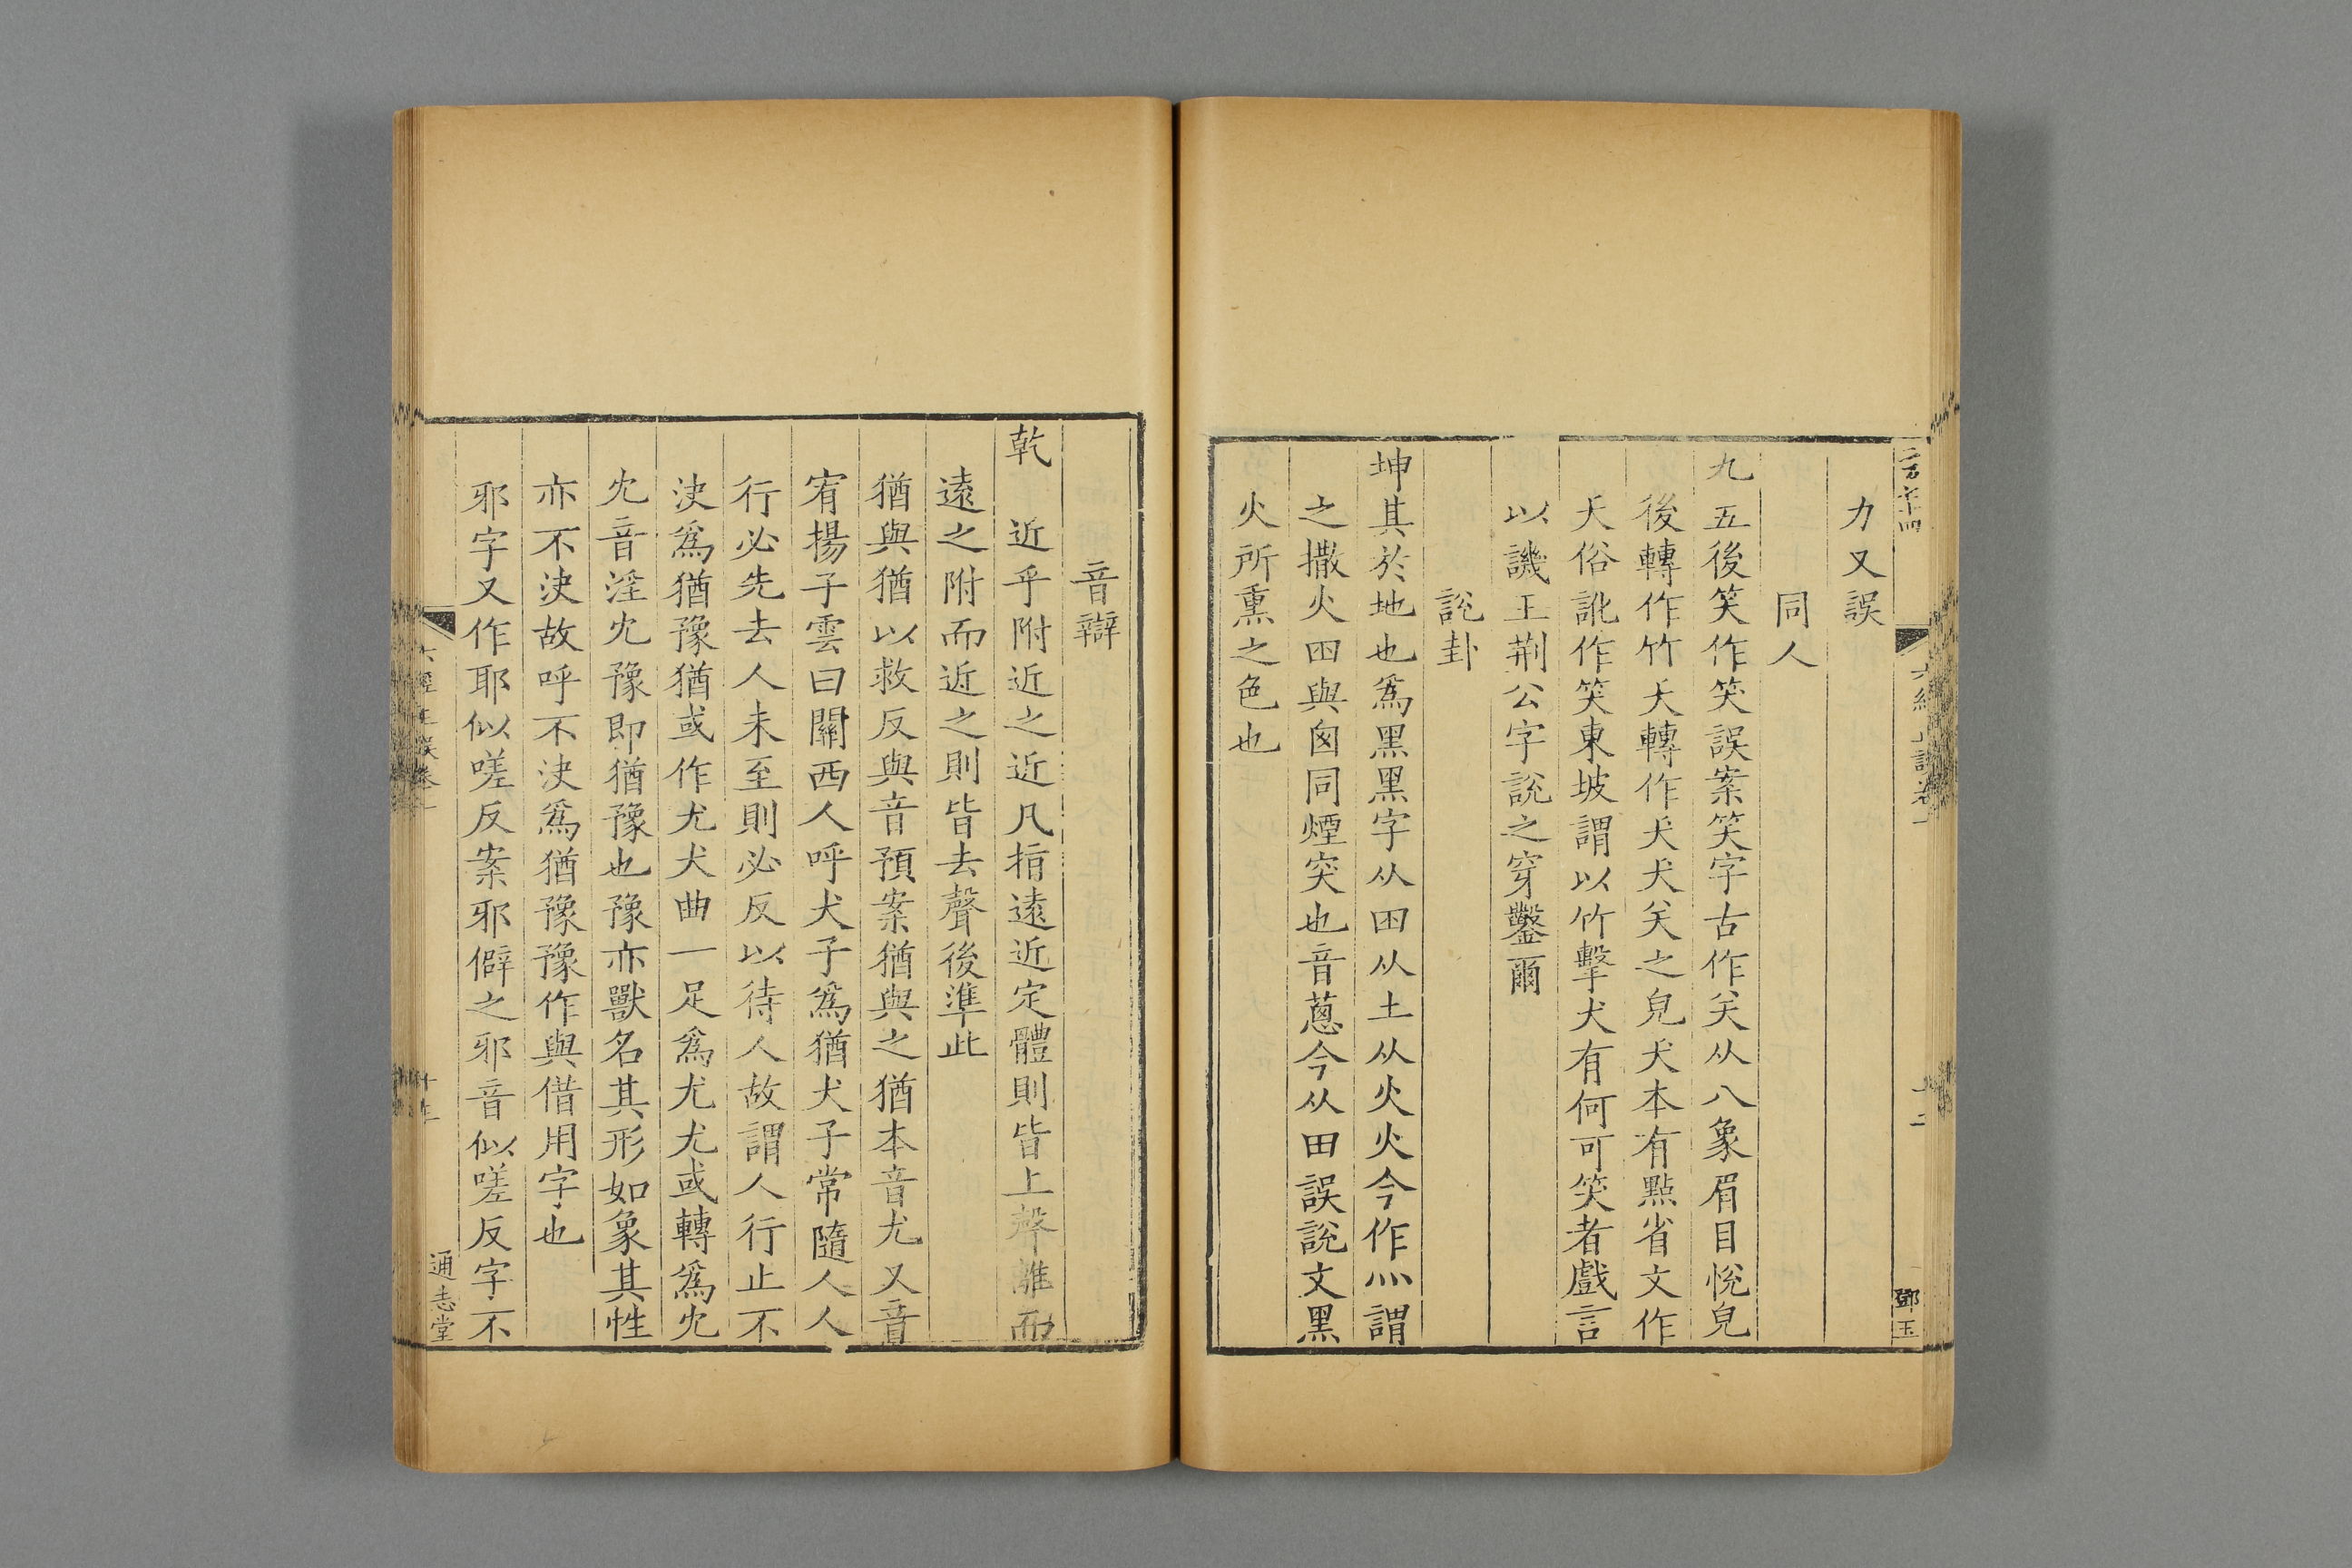 力又誤
同人
九五後笑作笶誤案笑字古作关从八象眉目悅皃
後轉作竹夭轉作犬犬关之皃犬本有點省文作
夭俗訛作笑東坡謂以竹擊犬有何可笑者戲言
以譏王荆公字說之穿鑿爾
說卦
坤其於地也爲黑黑字从囧从土从火火今作灬謂
之撒火囧與囪同煙突也音蔥今从田誤說文黑
火所熏之色也
鄧玉
音辯
乾　近乎附近之近凡指遠近定體則皆上聲離而
遠之附而近之則皆去聲後準此
猶與猶以救反與音預案猶與之猶本音尤又音
宥揚子雲曰關西人呼犬子爲猶犬子常隨人人
行必先去人未至則必反以待人故謂人行止不
決爲猶豫猶或作尤犬曲一足爲尤尤或轉爲冘
冘音淫冘豫即猶豫也豫亦獸名其形如象其性
亦不決故呼不決爲猶豫豫作與借用字也
邪字又作耶似嗟反案邪僻之邪音似嗟反字不
通志堂